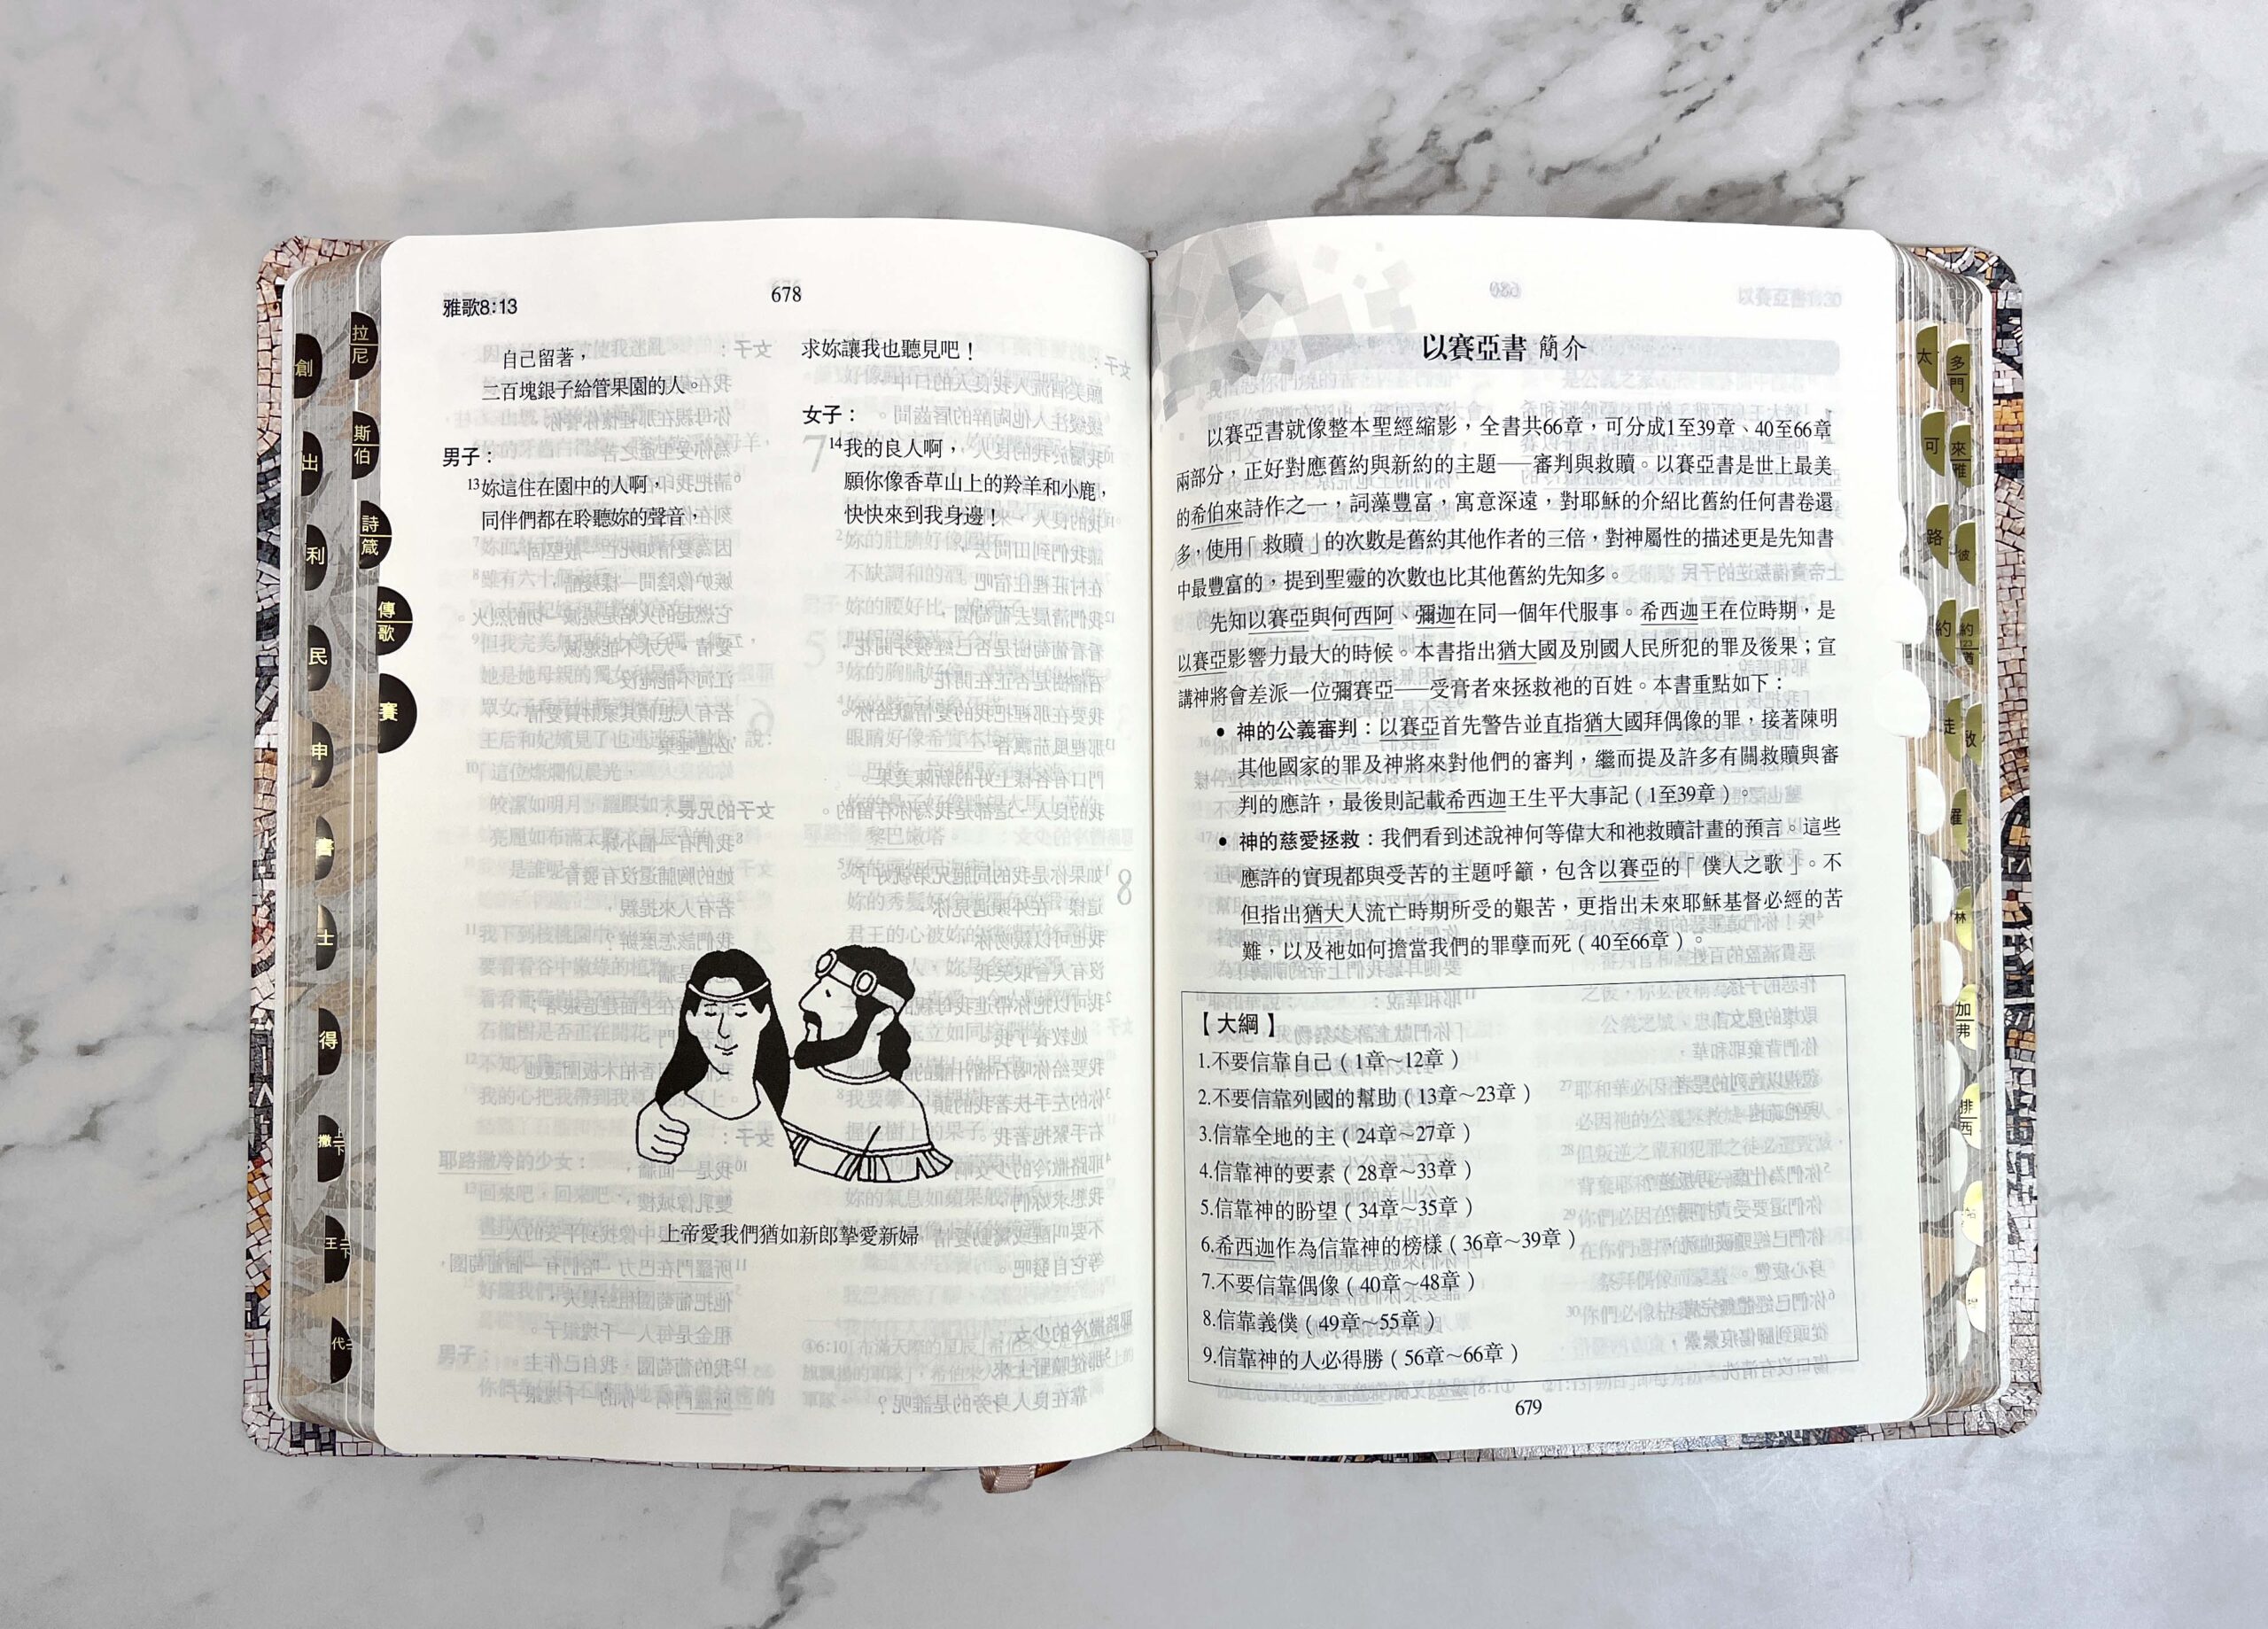 雅歌8:13
678
自己留著，
二百塊銀子給管果園的人。
男子：
13妳這住在園中的人啊，
同伴們都在聆聽妳的聲音，
求妳讓我也聽見吧！
女子：
14我的良人啊，
願你像香草山上的羚羊和小鹿，
快快來到我身邊！
上帝愛我們猶如新郎摯愛新婦
以賽亞書 簡介
以賽亞書就像整本聖經縮影，全書共66章，可分成1至39章、40至66章
兩部分，正好對應舊約與新約的主題——審判與救贖。以賽亞書是世上最美
的希伯來詩作之一，詞藻豐富，寓意深遠，對耶穌的介紹比舊約任何書卷還
多，使用「救贖」的次數是舊約其他作者的三倍，對神屬性的描述更是先知書
中最豐富的，提到聖靈的次數也比其他舊約先知多。
先知以賽亞與何西阿、彌迦在同一個年代服事。希西迦王在位時期，是
以賽亞影響力最大的時候。本書指出猶大國及別國人民所犯的罪及後果；宣
講神將會差派一位彌賽亞——受膏者來拯救祂的百姓。本書重點如下：
• 神的公義審判：以賽亞首先警告並直指猶大國拜偶像的罪，接著陳明
其他國家的罪及神將來對他們的審判，繼而提及許多有關救贖與審
判的應許，最後則記載希西迦王生平大事記（1至39章）。
• 神的慈愛拯救：我們看到述說神何等偉大和祂救贖計畫的預言。這些
應許的實現都與受苦的主題呼籲，包含以賽亞的「僕人之歌」。不
但指出猶大人流亡時期所受的艱苦，更指出未來耶穌基督必經的苦
難，以及祂如何擔當我們的罪孽而死（40至66章）。
【大綱】
1.不要信靠自己（1章～12章）
2.不要信靠列國的幫助（13章～23章）
3.信靠全地的主（24章～27章）
4.信靠神的要素（28章～33章）
5.信靠神的盼望（34章～35章）
6.希西迦作為信靠神的榜樣（36章～39章）
7.不要信靠偶像（40章～48章）
8.信靠義僕（49章～55章）
9.信靠神的人必得勝（56章～66章）
679
創
出
利
民
申
書
士
得
撒上下
王上下
代
拉
尼
斯
伯
詩
箴
傳
歌
賽
太
可
路
約
徒
羅
林
加
弗
排
西
多
門
來
雅
彼
約
猶
啟